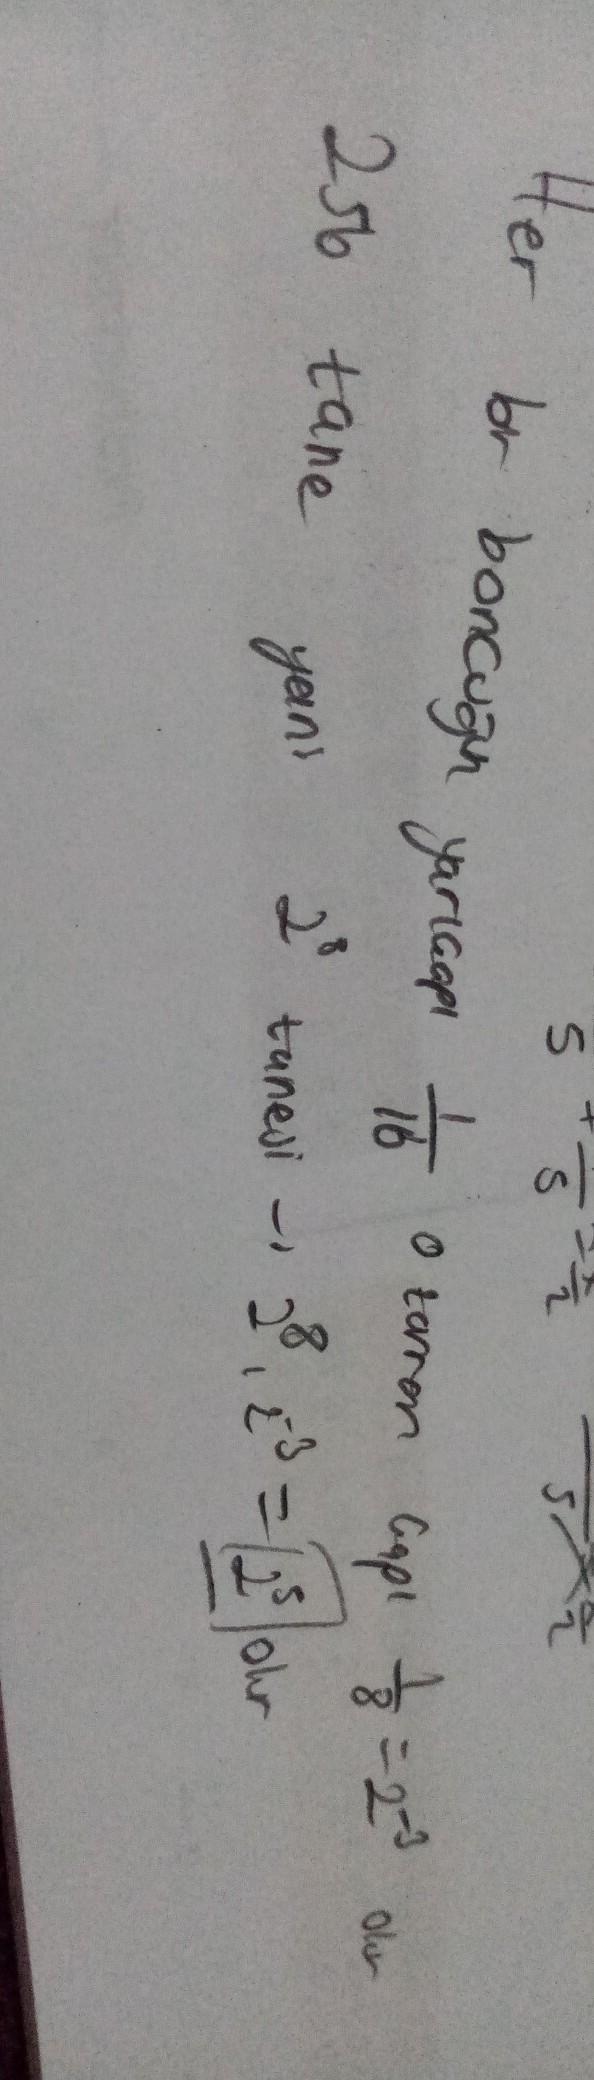 5 + —/5 = x/2
5 x/2
Her br boncuğn yarıçapı 1/16 o taman çapı 1/8 = 2^-3 olur
256 tane yani 2^8 tanesi → 2^8 . 2^-3 = 2^5 olur